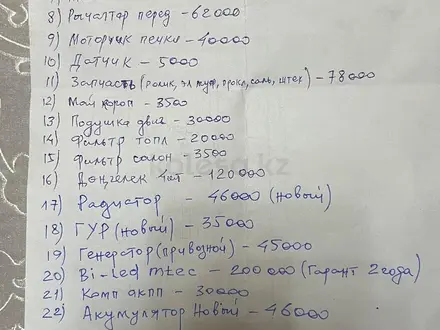 8) Рычалтор перед - 62000
9) Моторчик печки - 40000
10) Датчик - 5000
11) Запчасть (ролик, эл муф, прокл, саль, штех) - 78000
12) Май короп - 3500
13) Подушка двиг - 30000
14) Фильтр топл - 20000
15) Фильтр салон - 3500
16) Доңгелек 4шт - 120000
17) Радиатор - 46000 (новый)
18) ГУР (новый) - 35000
19) Генератор (приводной) - 45000
20) Bi-led mtec - 200000 (Гарант 2 года)
21) Комп акпп - 30000
22) Акумулятор Новый - 46000